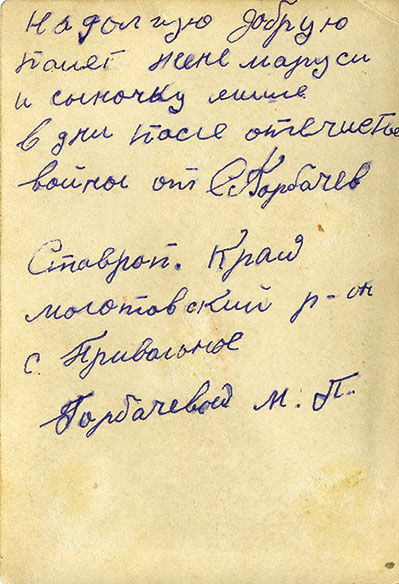 на долгую добрую
памят жене маруси
и сыночку мише
в дни после отечистве
войны от С Горбачев
Ставроп. Край
молотовский р-он
с. Привольное
Горбачевой М. П.